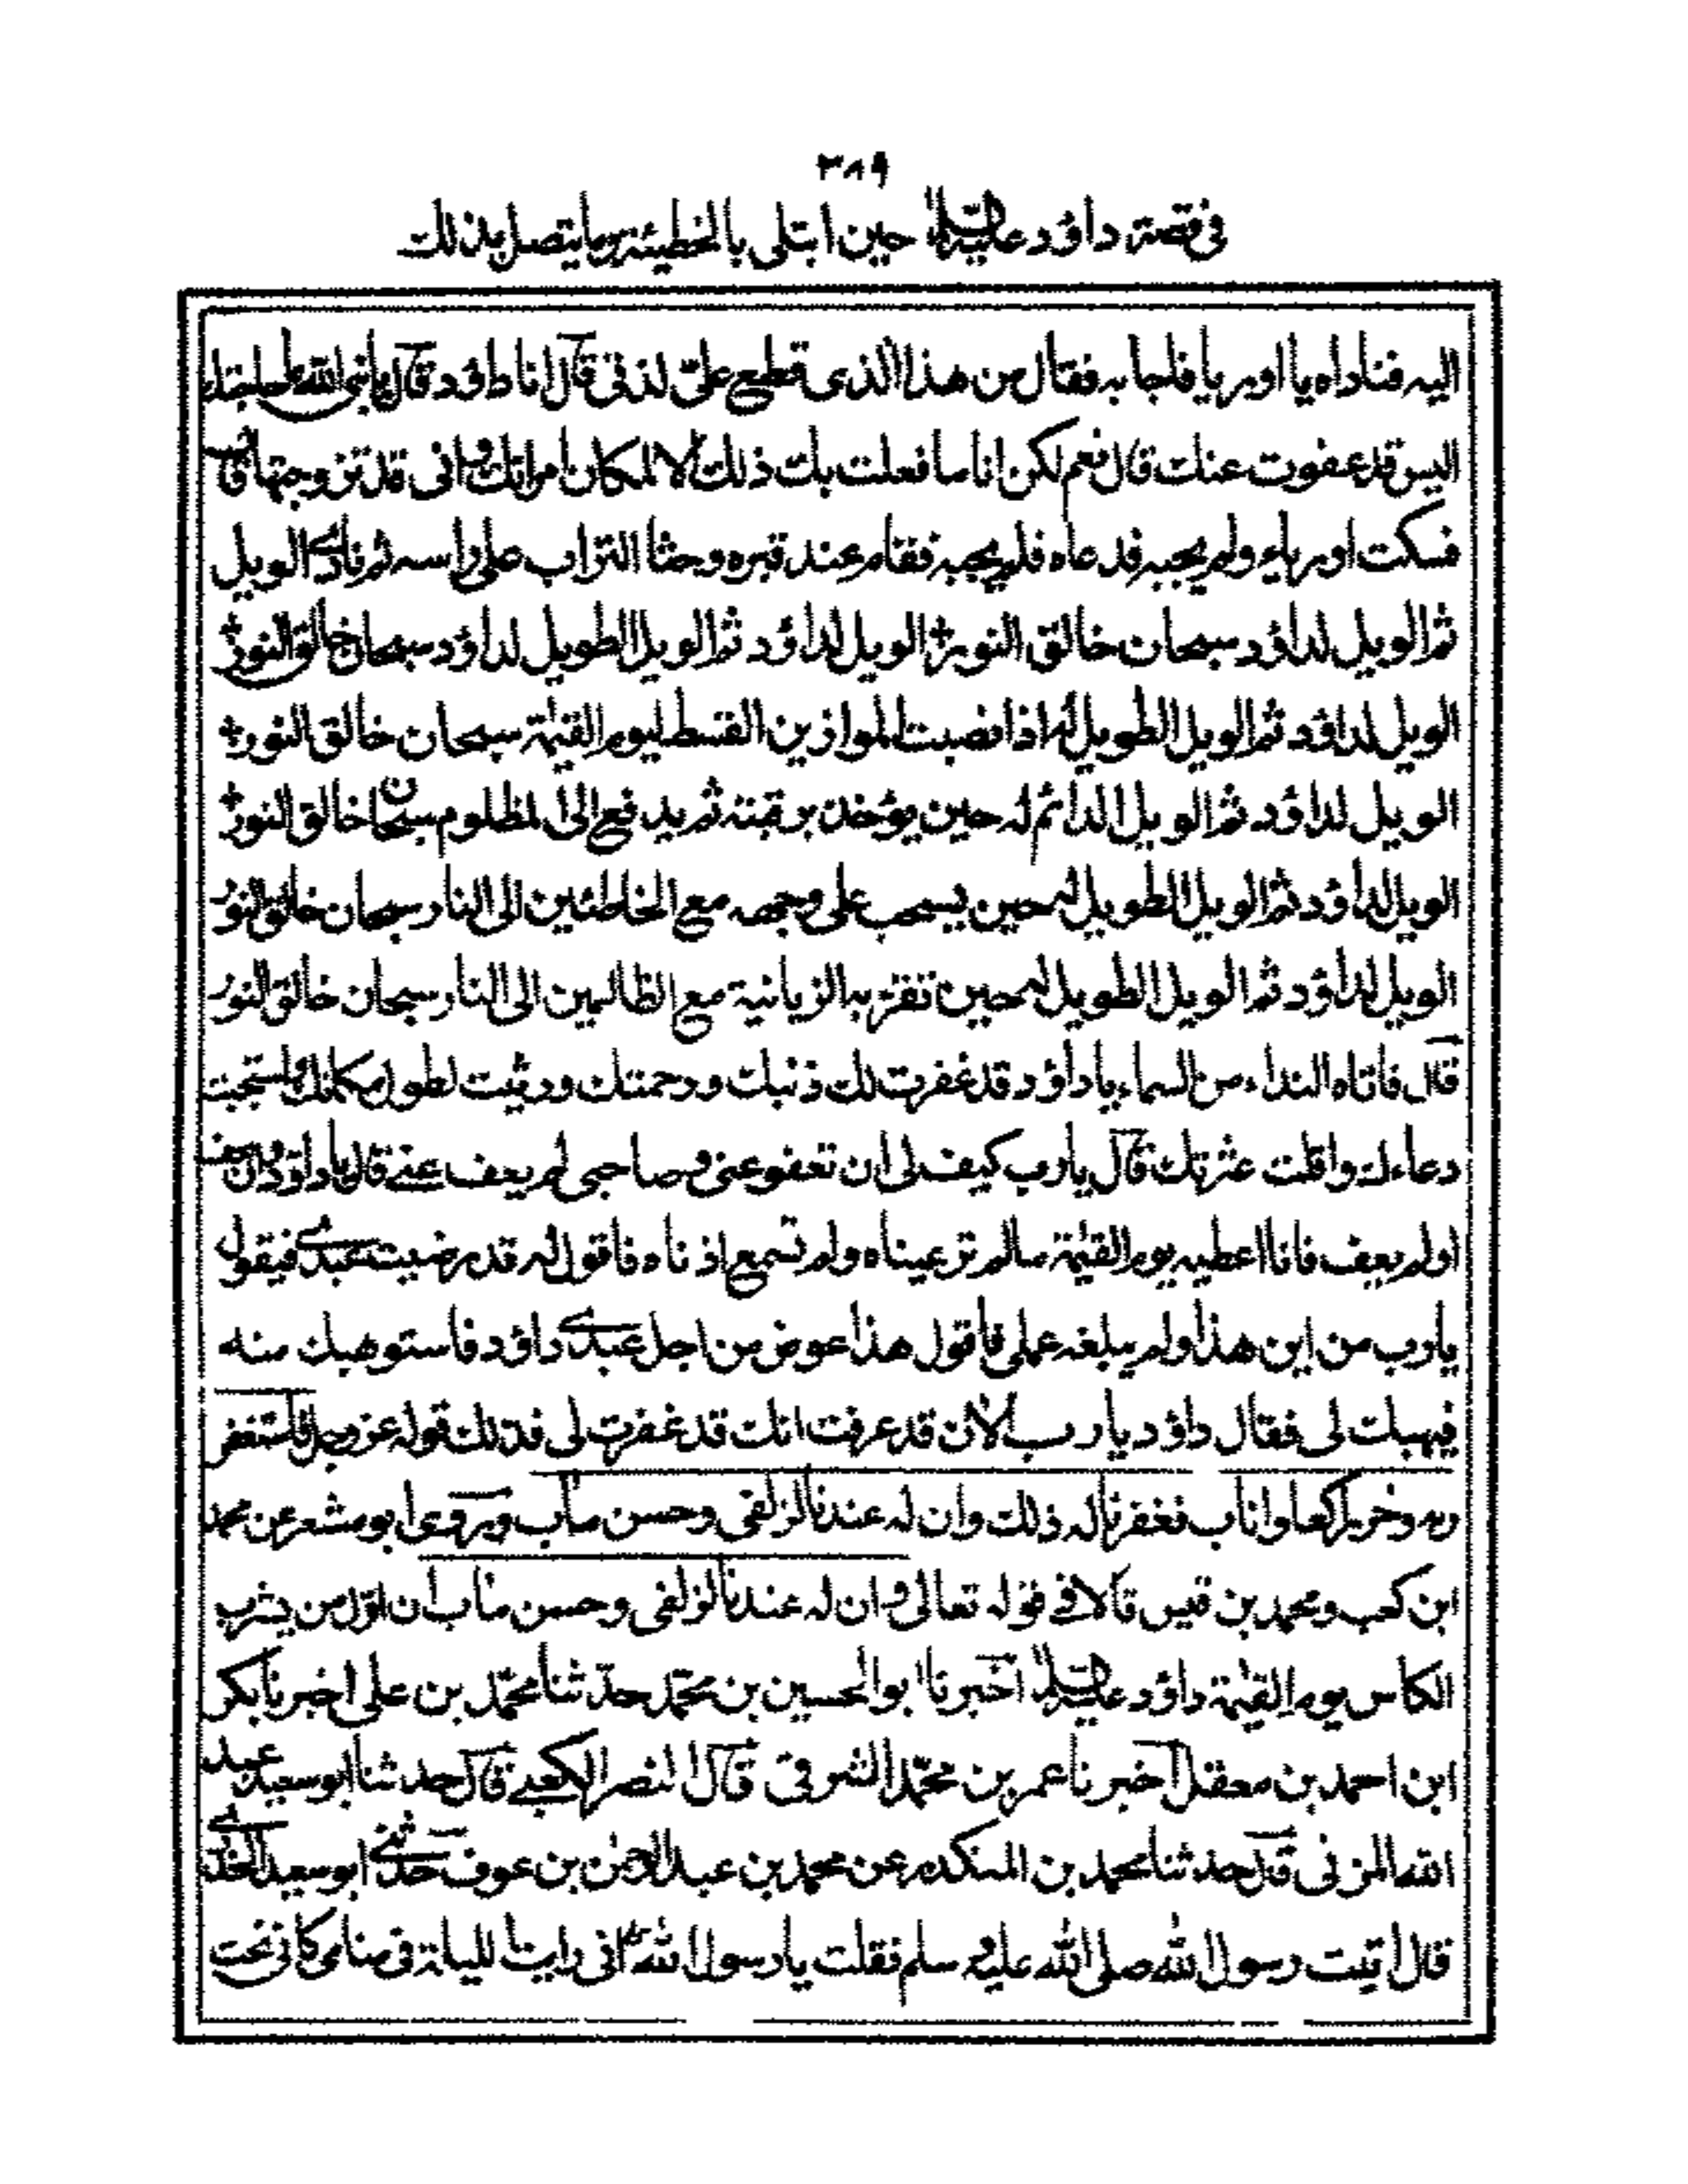 ٣٨٩
في قصة داؤد عليه السلام حين ابتلى بالخطيئة وما يتصل بذلك
اليه فناداه يا اوريا فاجابه فقال من هذا الذى قطع علىّ لذتى قال انا داؤد قال يا نبى الله ما حاجتك
اليس قد عفوت عنك قال نعم لكن انا ما فعلت بك ذلك الا لمكان امراتك وانى قد تزوجتها قال
فسكت اورياء ولم يجبه فدعاه فلم يجبه فقام عند قبره وحثا التراب على راسه ثم نادى الويل
ثم الويل لداؤد سبحان خالق النور الويل لداؤد ثم الويل الطويل لداؤد سبحان خالق النور
الويل لداؤد ثم الويل الطويل له اذا نصبت الموازين القسط ليوم القيمة سبحان خالق النور
الويل لداؤد ثم الويل الدائم له حين يؤخذ برقبته ثم يدفع الى المظلوم سبحان خالق النور
الويل لداؤد ثم الويل الطويل له حين يسحب على وجهه مع الخاطئين الى النار سبحان خالق النور
الويل لداؤد ثم الويل الطويل له حين تقربه الزبانية مع الظالمين الى النار سبحان خالق النور
قال فاتاه النداء من السماء يا داؤد قد غفرت لك ذنبك ورحمتك ورثيت لطول مكانك واستجبت
دعاءك واقلت عثرتك قال يارب كيف لى ان تعفو عنى وصاحبى لم يعف عنى قال يا داؤد ان عف
اولم يعف فانا اعطيه يوم القيمة مالم تر عيناه ولم تسمع اذناه فاقول له قد رضيت عبدى فيقول
يارب من اين هذا ولم يبلغه عملى فاقول هذا عوض من اجل عبدى داؤد فاستوهبك منه
فيهبك لى فقال داؤد يا رب الان قد عرفت انك قد غفرت لى فذلك قوله عز وجل فاستغفر
ربه وخر راكعا واناب فغفرنا له ذلك وان له عندنا لزلفى وحسن ماب وروى ابو مشعر عن محمد
ابن كعب ومحمد بن قيس قالا فى قوله تعالى وان له عندنا لزلفى وحسن ماب ان اول من يشرب
الكاس يوم القيمة داؤد عليه السلام اخبرنا ابو الحسين بن محمّد حدّثنا محمّد بن على اخبرنا بكر
ابن احمد بن معقل اخبرنا عمر بن محمّد الشرقى قال النصر الكعبى قال حدثنا ابو سعيد عبد
الله المزنى قال حدثنا محمد بن المنكدر عن محمد بن عبد الرحمن بن عوف حدثنى ابو سعيد الخدرى
قال اتيت رسول الله صلى الله عليه وسلم فقلت يا رسول الله انى رايت الليلة فى منامى كانى تحت